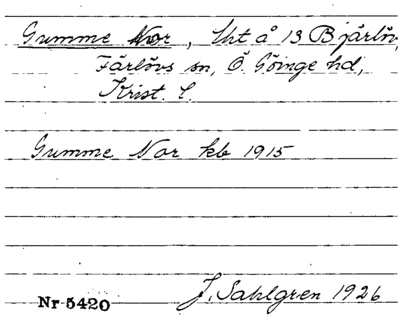 Gumme Nor, Lht å 13 Bjärlöv,
Färlövs sn, Ö. Göinge hd,
Krist. l.
Gumme Nor kb 1915
Nr 5420 J. Sahlgren 1926